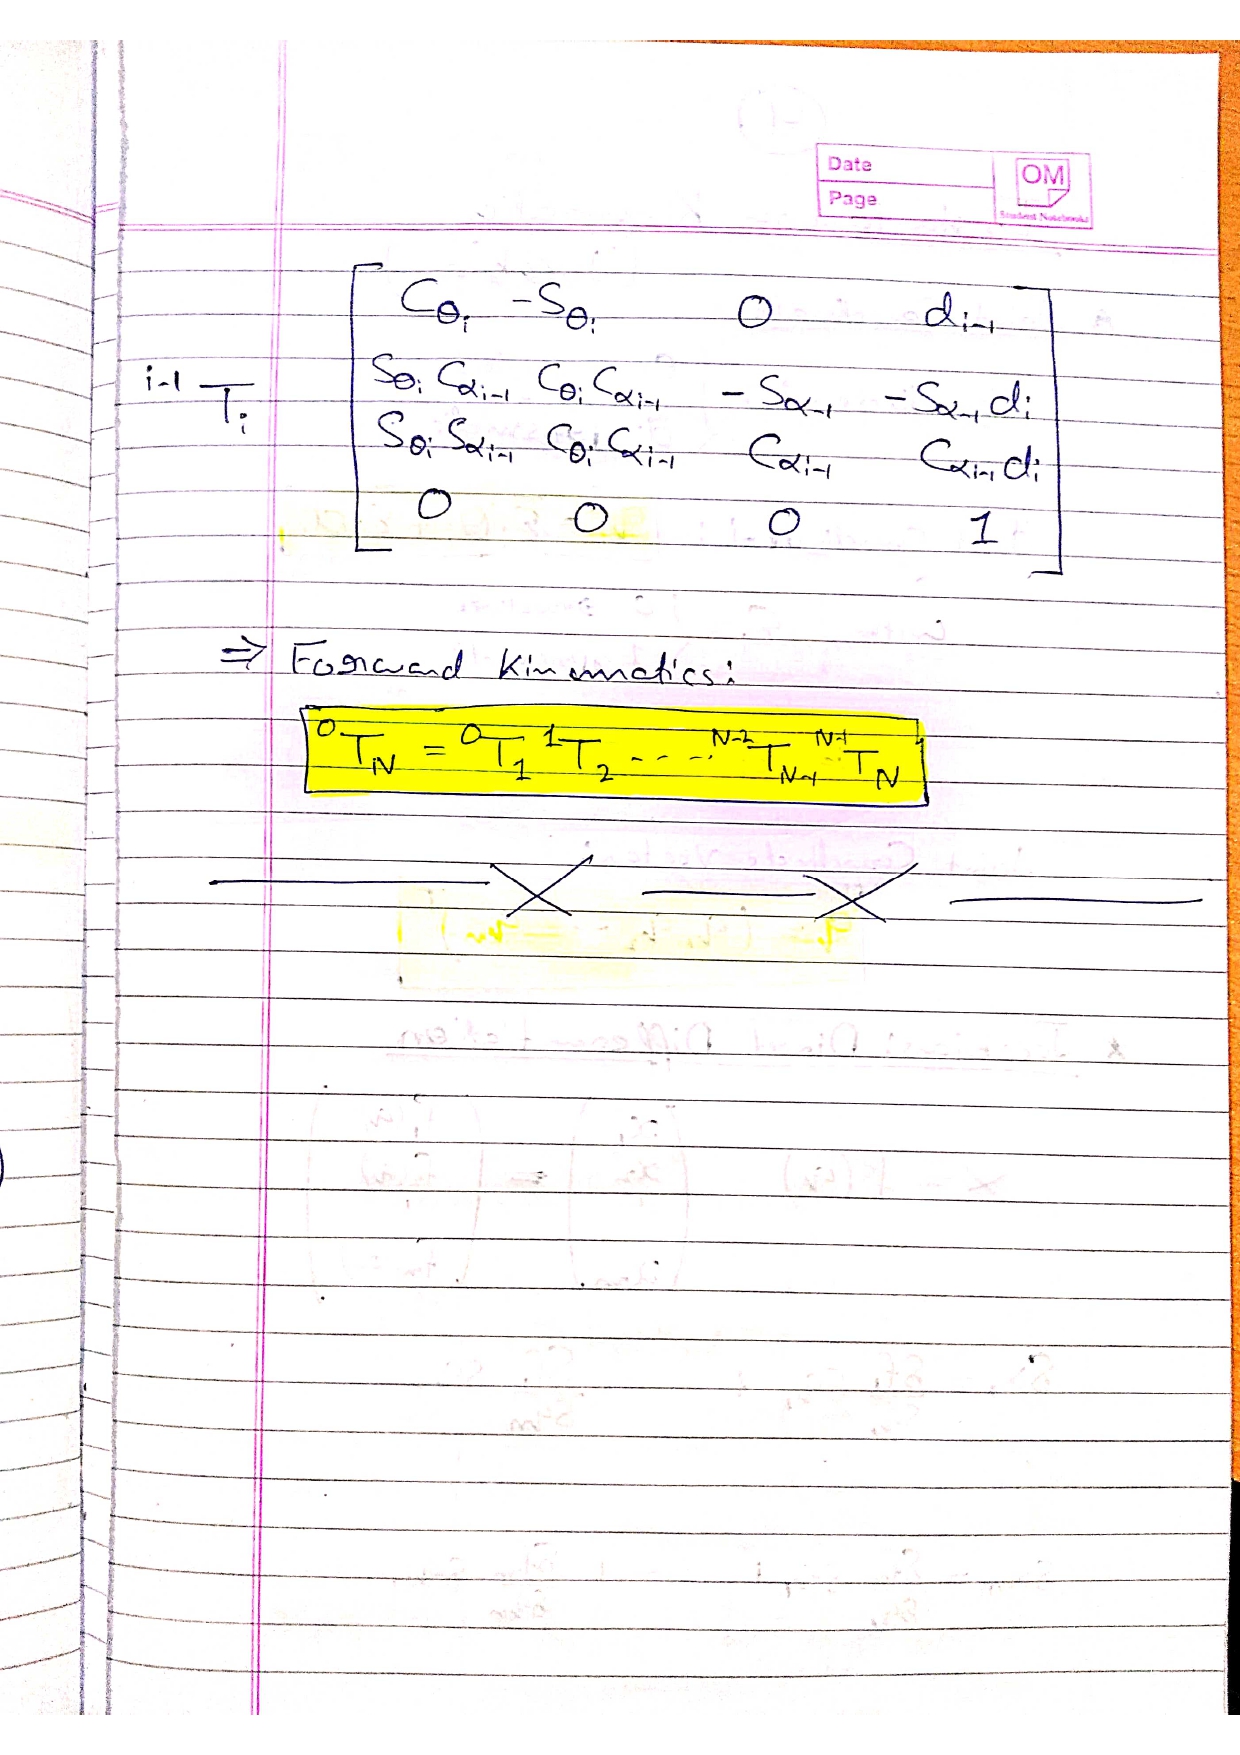 Date
OM
Page
Student Notebooks
Cθi -Sθi 0 di-1
i-1Ti
Sθi Cαi-1 Cθi Cαi-1 -Sα-1 -Sα-1 di
Sθi Sαi-1 Cθi Cαi-1 Cαi-1 Cαi-1 di
0 0 0 1
⇒ Forward Kinematics:
0TN = 0T1 1T2 ---- N-2TN-1 N-1TN